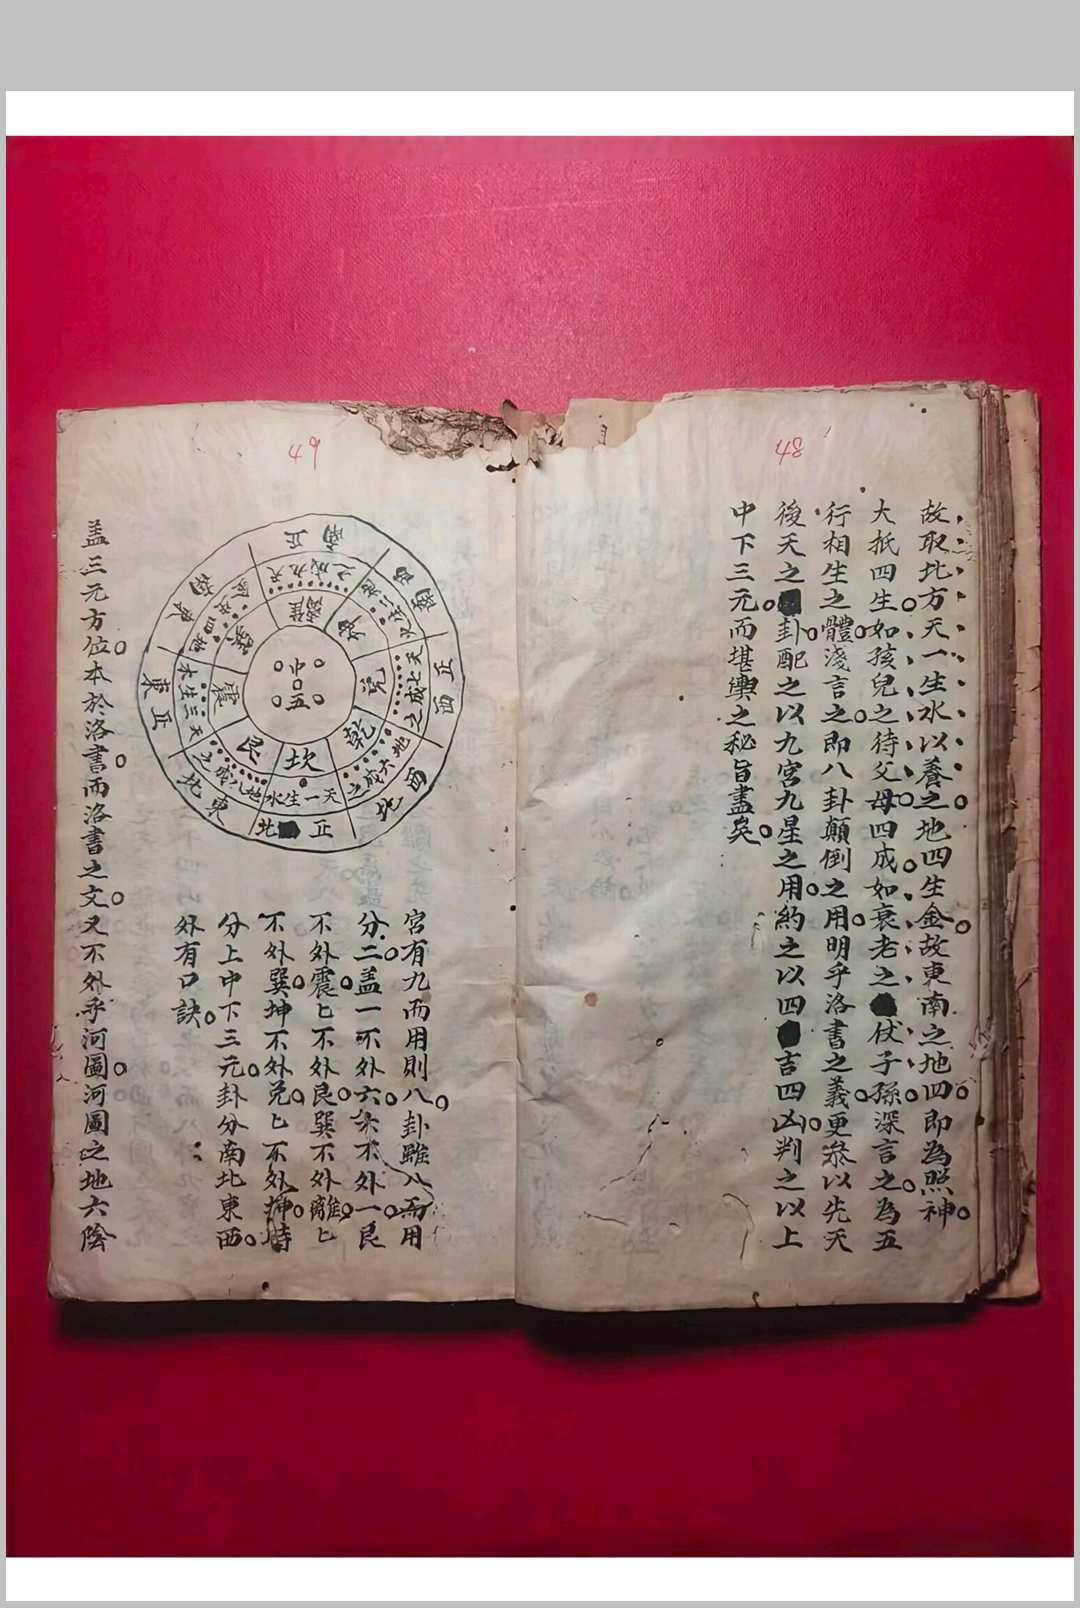 48
故取北方天一生水以養之地四生金故東南之地四即為照神
大抵四生如孩兒之待父母四成如衰老之伏子孫深言之為五
行相生之體淺言之即八卦顛倒之用明乎洛書之義更叅以先天
後天之卦配之以九宮九星之用約之以四吉四凶判之以上
中下三元而堪輿之秘旨盡矣
49
宮有九而用則八卦雖八而用
分二盖一不外六六不外一艮
不外震匕不外艮巽不外離匕
不外巽坤不外兌匕不外坤時
分上中下三元卦分南北東西
外有口訣
正南
西南
正西
西北
正北
東北
正東
東南
天九成之
天七成之
地六成之
天一生水
地八成之
天三生木
離
坤
兌
乾
坎
艮
震
巽
中五
盖三元方位本於洛書而洛書之文又不外乎河圖河圖之地六陰